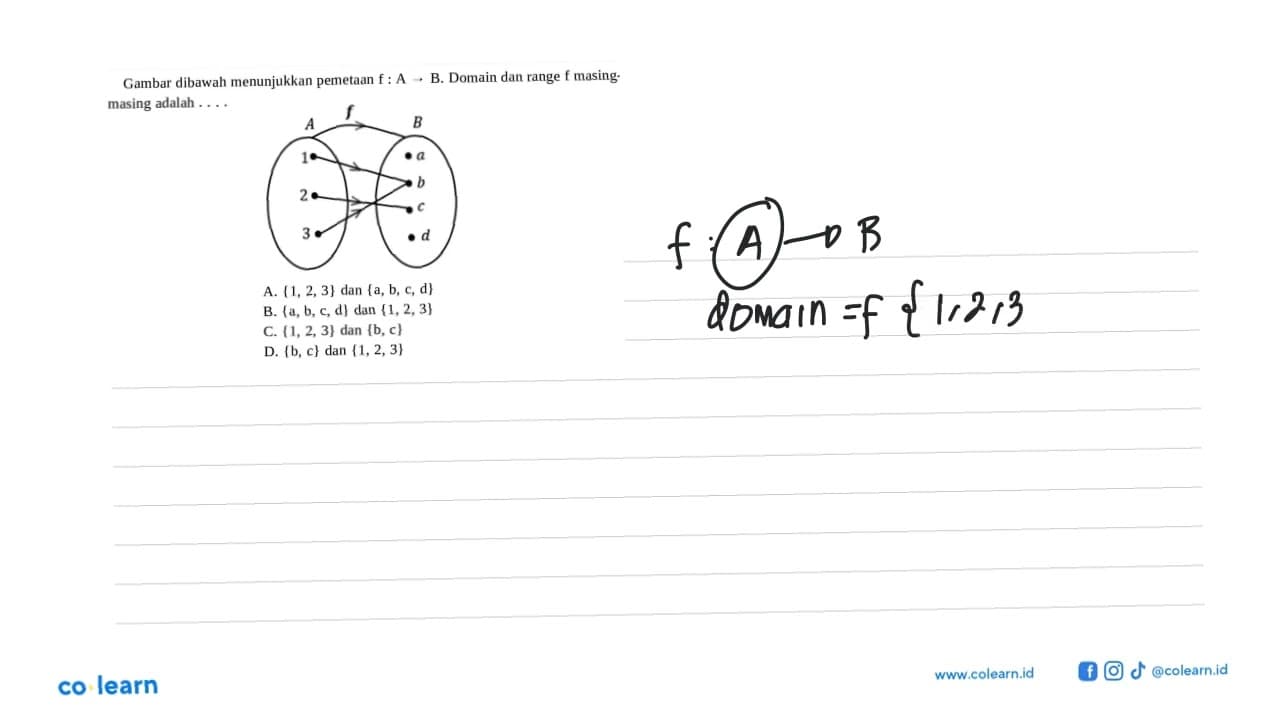 Gambar dibawah menunjukkan pemetaan f : A → B. Domain dan range f masing-
masing adalah . . . .
f
A
B
1
a
2
b
c
3
d
A. {1, 2, 3} dan {a, b, c, d}
B. {a, b, c, d} dan {1, 2, 3}
C. {1, 2, 3} dan {b, c}
D. {b, c} dan {1, 2, 3}
f : A → B
domain = f { 1, 2, 3
co learn
www.colearn.id
@colearn.id